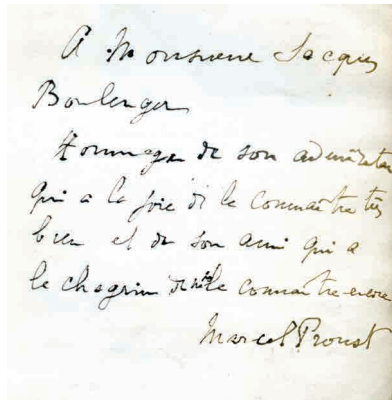 A Monsieur Jacques
Boulenger
Hommage de son admirateur
qui a la joie de le connaître très
bien et de son ami qui a
le chagrin de ne le connaître encore
Marcel Proust